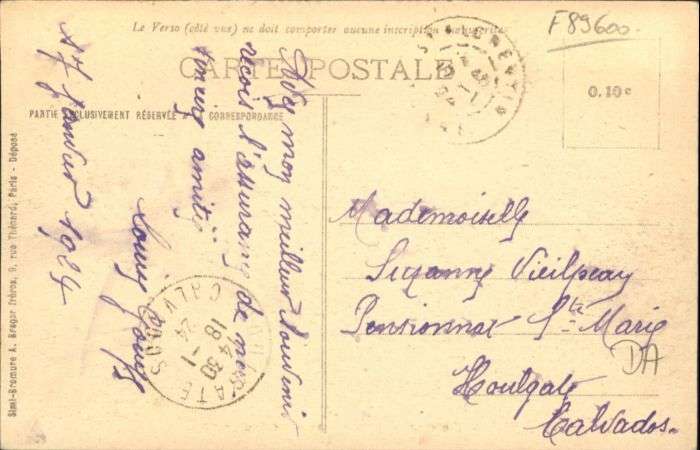 Le Verso (côté vue) ne doit comporter aucune inscription manuscrite
F89600
CARTE POSTALE
0.10c
PARTIE EXCLUSIVEMENT RÉSERVÉE A LA CORRESPONDANCE
17 Janvier 1924
Avec mon meilleur Souvenir
reçois l'assurance de mes
sincères amitiés
Louis
Mademoiselle
Suzanne Vieilpeau
Pensionnat Ste Marie
Houlgate
Calvados.
DA
CALVADOS
18 30
Simil-Bromure A. Breger frères, 9, rue Thénard, Paris - Déposé